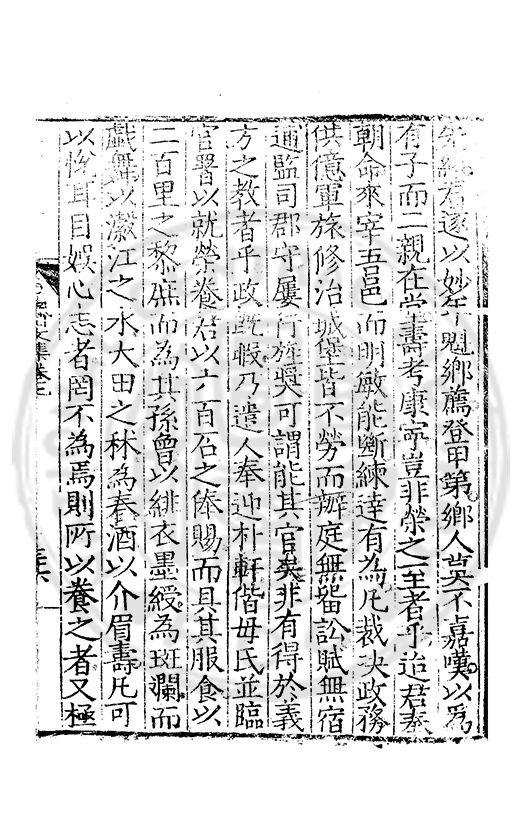 君遂以妙年魁鄉薦登甲第鄉人莫不嘉嘆以為
有子而二親在堂壽考康寧豈非榮之至者乎迨君奉
朝命來宰吾邑而明敏能斷練達有為凡裁決政務
供億軍旅修治城堡皆不勞而辦庭無留訟賦無宿
逋監司郡守屢行旌奬可謂能其官矣非有得於義
方之教者乎政既暇乃遣人奉迎朴軒偕母氏並臨
官署以就榮養君以六百石之俸賜而具其服食以
二百里之黎庶而為其孫曾以緋衣墨綬為斑斕而
戲舞以瀫江之水大田之秫為春酒以介眉壽凡可
以悅耳目娛心志者罔不為焉則所以養之者又極
文集卷之